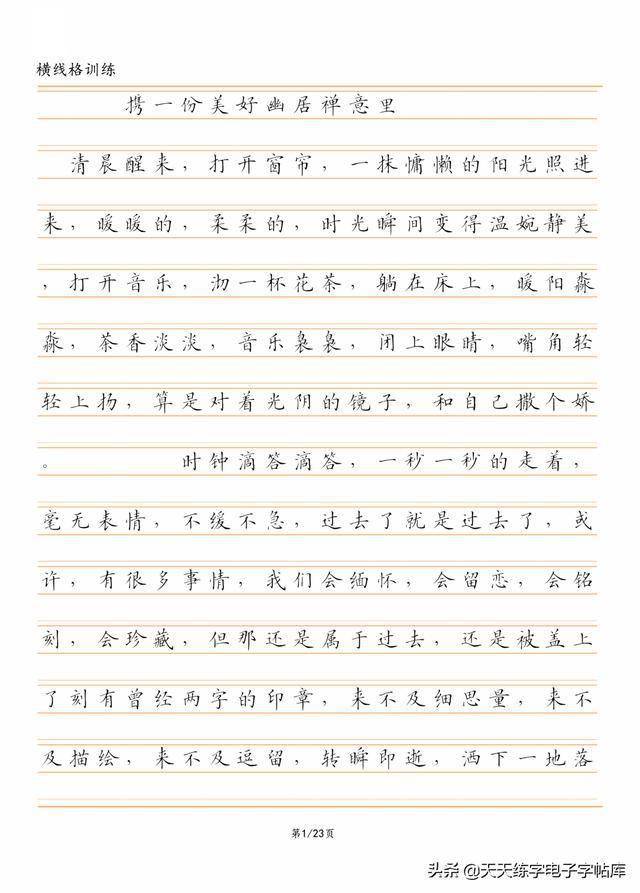 横线格训练
携一份美好幽居禅意里
清晨醒来，打开窗帘，一抹慵懒的阳光照进
来，暖暖的，柔柔的，时光瞬间变得温婉静美
，打开音乐，沏一杯花茶，躺在床上，暖阳淼
淼，茶香淡淡，音乐袅袅，闭上眼睛，嘴角轻
轻上扬，算是对着光阴的镜子，和自己撒个娇
。 时钟滴答滴答，一秒一秒的走着，
毫无表情，不缓不急，过去了就是过去了，或
许，有很多事情，我们会缅怀，会留恋，会铭
刻，会珍藏，但那还是属于过去，还是被盖上
了刻有曾经两字的印章，来不及细思量，来不
及描绘，来不及逗留，转瞬即逝，洒下一地落
第1/23页
头条 @天天练字电子字帖库